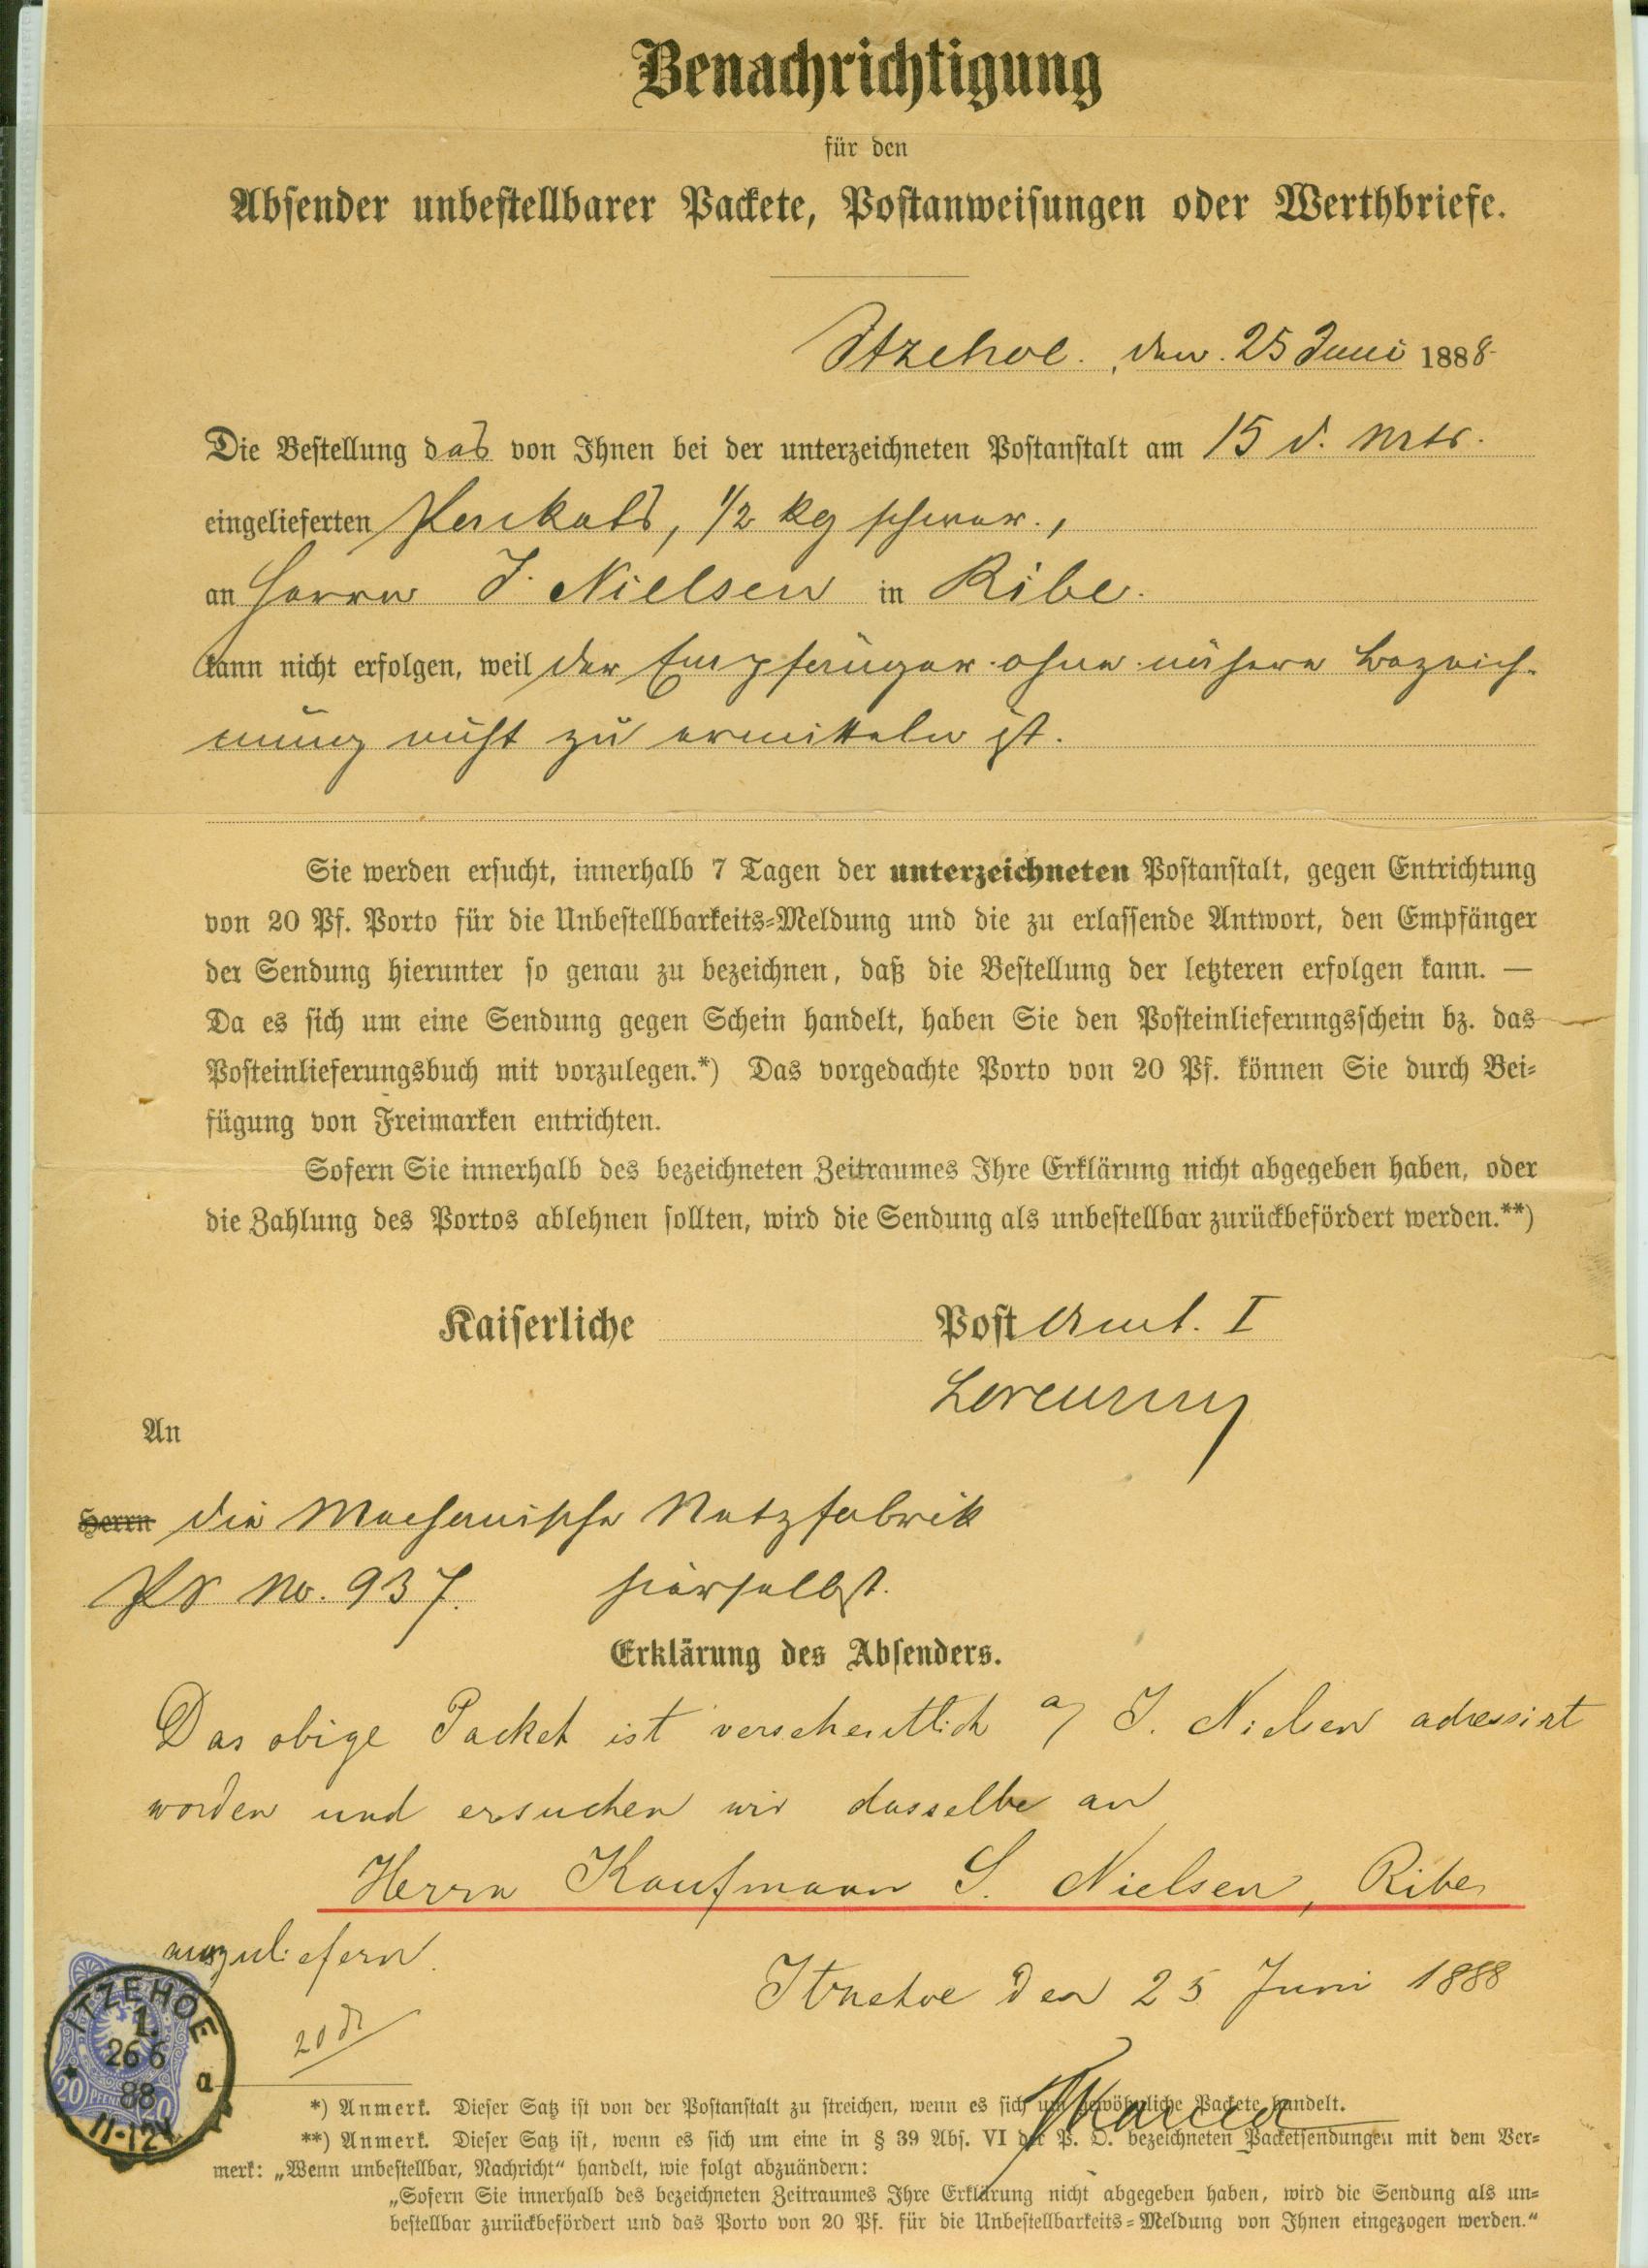 Benachrichtigung
für den
Absender unbestellbarer Packete, Postanweisungen oder Werthbriefe.
Itzehoe. , den. 25 Juni 1888
Die Bestellung das von Ihnen bei der unterzeichneten Postanstalt am 15 d. Mts.
eingelieferten Packets, 1/2 kg schwer.,
an Herrn J. Nielsen in Ribe.
kann nicht erfolgen, weil der Empfänger ohne nähere Bezeich-
nung nicht zu ermitteln ist.
Sie werden ersucht, innerhalb 7 Tagen der unterzeichneten Postanstalt, gegen Entrichtung
von 20 Pf. Porto für die Unbestellbarkeits-Meldung und die zu erlassende Antwort, den Empfänger
der Sendung hierunter so genau zu bezeichnen, daß die Bestellung der letzteren erfolgen kann. —
Da es sich um eine Sendung gegen Schein handelt, haben Sie den Posteinlieferungsschein bz. das
Posteinlieferungsbuch mit vorzulegen.*) Das vorgedachte Porto von 20 Pf. können Sie durch Bei-
fügung von Freimarken entrichten.
Sofern Sie innerhalb des bezeichneten Zeitraumes Ihre Erklärung nicht abgegeben haben, oder
die Zahlung des Portos ablehnen sollten, wird die Sendung als unbestellbar zurückbefördert werden.**)
Kaiserliche Post Amt. I
An
Herrn die Mechanische Netzfabrik
No. 937. hierselbst.
Erklärung des Absenders.
Das obige Packet ist versehentlich a/ J. Nielsen adressirt
worden und ersuchen wir dasselbe an
Herrn Kaufmann S. Nielsen, Ribe
auszuliefern.
Itzehoe den 25 Juni 1888
20
ITZEHOE
1.
26 6
88
a
11-12V
20 PFENNIG 20
*) Anmerk. Dieser Satz ist von der Postanstalt zu streichen, wenn es sich um gewöhnliche Packete handelt.
**) Anmerk. Dieser Satz ist, wenn es sich um eine in § 39 Abs. VI der P. O. bezeichneten Packetsendungen mit dem Ver-
merk: „Wenn unbestellbar, Nachricht“ handelt, wie folgt abzuändern:
„Sofern Sie innerhalb des bezeichneten Zeitraumes Ihre Erklärung nicht abgegeben haben, wird die Sendung als un-
bestellbar zurückbefördert und das Porto von 20 Pf. für die Unbestellbarkeits-Meldung von Ihnen eingezogen werden.“